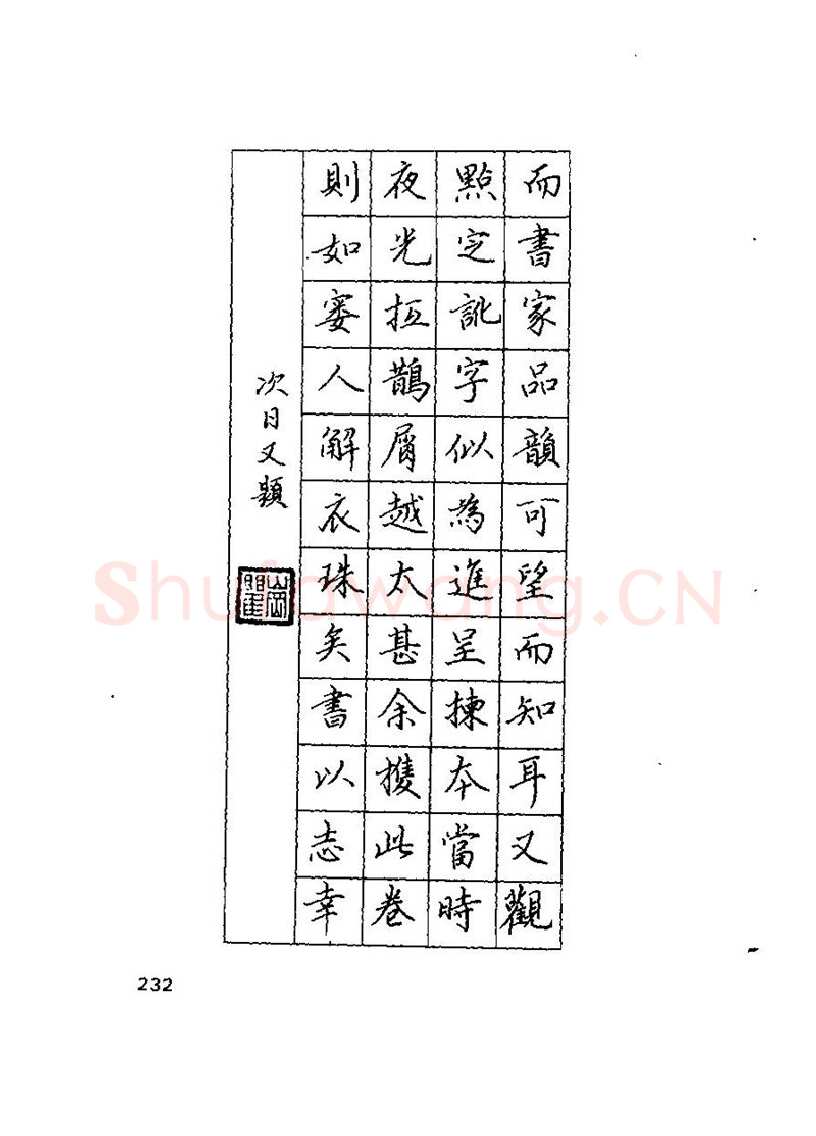 而書家品韻可望而知耳又觀
點定訛字似為進呈揀本當時
夜光抵鵲屑越太甚余攜此卷
則如窶人解衣珠矣書以志幸
次日又題
232
Shufawang.CN